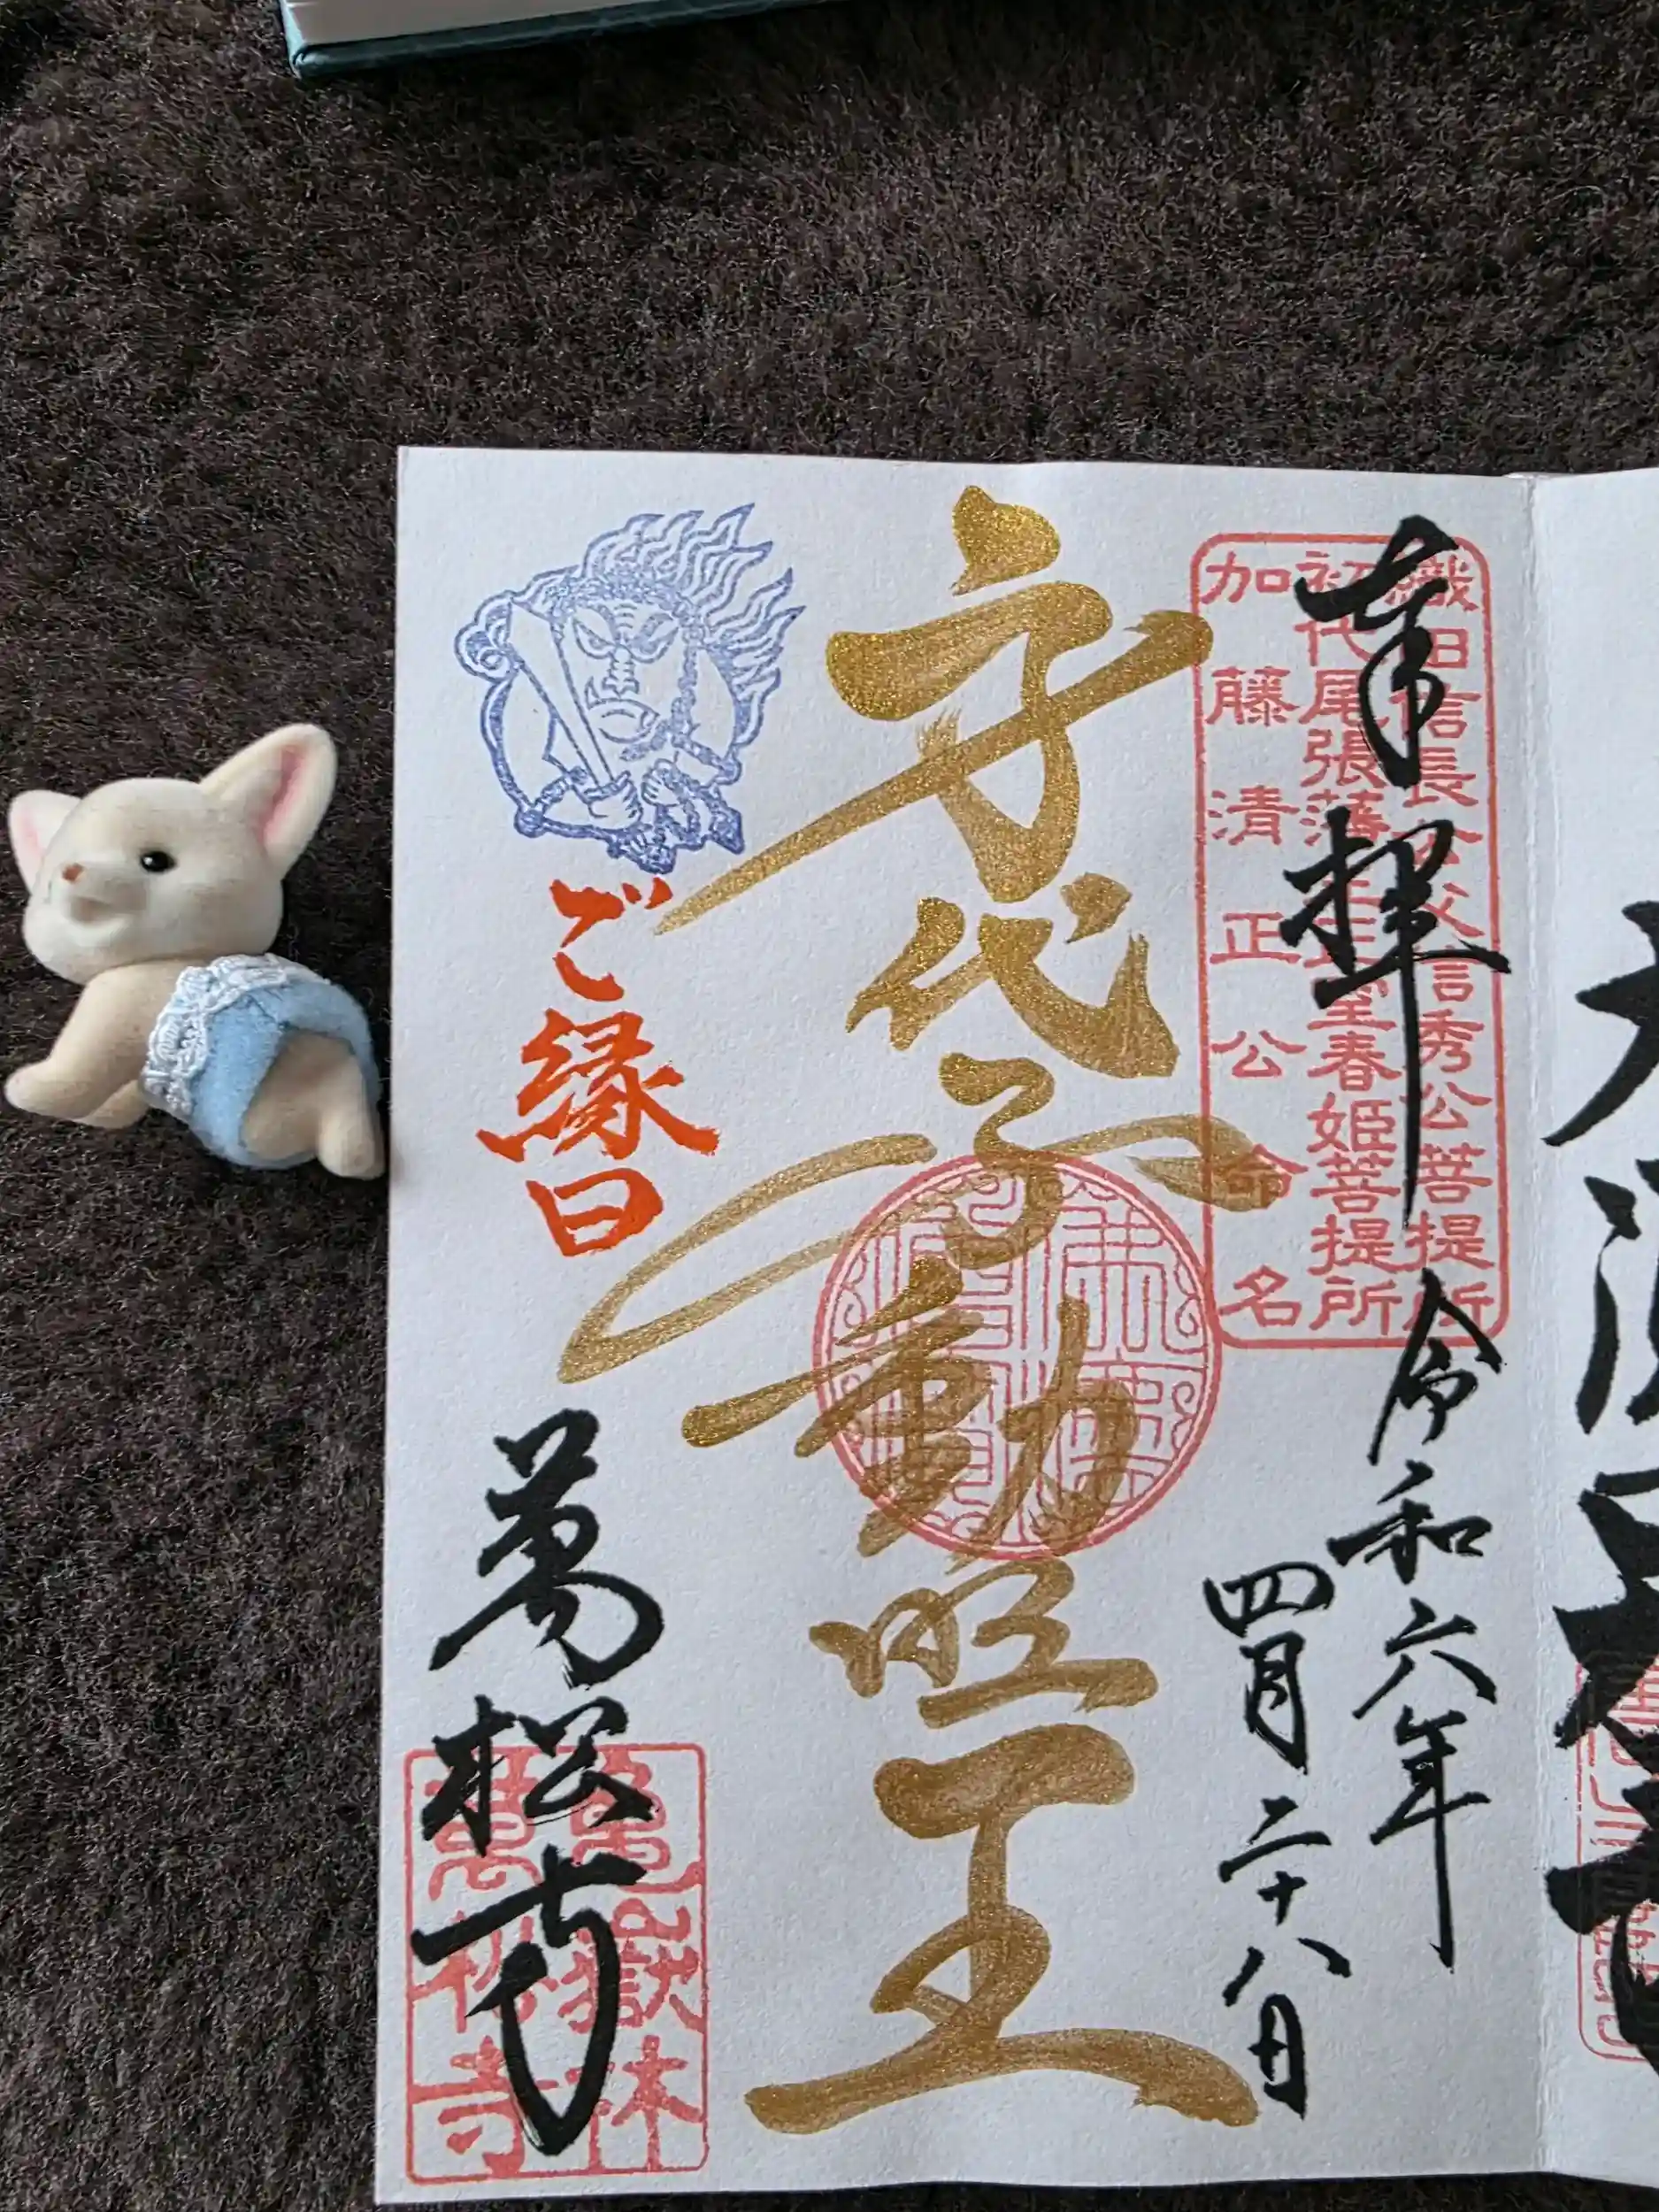 奉拝
令和六年
四月二十八日
織田信長公父信秀公菩提所
初代尾張藩主正室春姫菩提所
加藤清正公命名
身代不動明王
ご縁日
萬松寺
亀嶽林
萬松寺